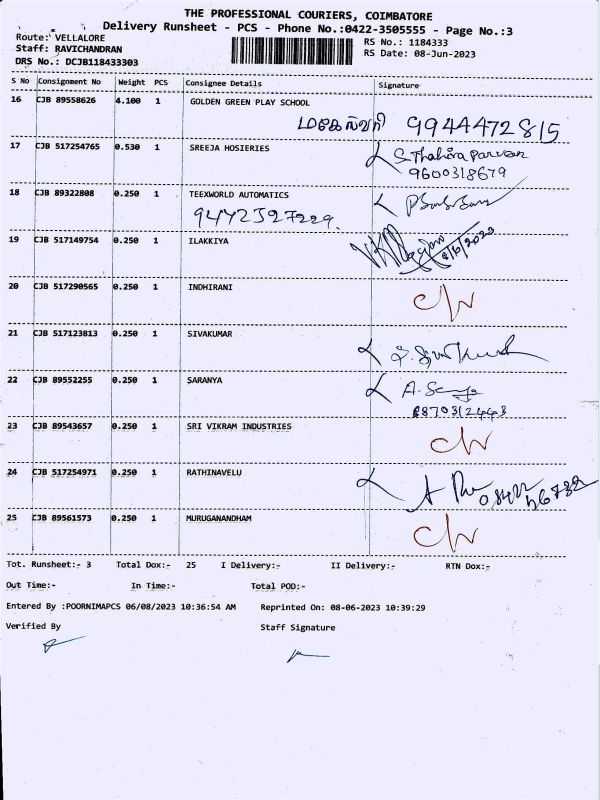 THE PROFESSIONAL COURIERS, COIMBATORE
Delivery Runsheet - PCS - Phone No.:0422-3505555 - Page No.:3
Route: VELLALORE
RS No.: 1184333
Staff: RAVICHANDRAN
RS Date: 08-Jun-2023
DRS No.: DCJB118433303
S No Consignment No Weight PCS Consignee Details Signature
16 CJB 89558626 4.100 1 GOLDEN GREEN PLAY SCHOOL
மகேஸ்வரி 9944472815
17 CJB 517254765 0.530 1 SREEJA HOSIERIES
9600318679
18 CJB 89322808 0.250 1 TEEXWORLD AUTOMATICS
9442327229.
19 CJB 517149754 0.250 1 ILAKKIYA
20 CJB 517290565 0.250 1 INDHIRANI
21 CJB 517123813 0.250 1 SIVAKUMAR
22 CJB 89552255 0.250 1 SARANYA
23 CJB 89543657 0.250 1 SRI VIKRAM INDUSTRIES
24 CJB 517254971 0.250 1 RATHINAVELU
25 CJB 89561573 0.250 1 MURUGANANDHAM
Tot. Runsheet:- 3 Total Dox:- 25 I Delivery:- II Delivery:- RTN Dox:-
Out Time:- In Time:- Total POD:-
Entered By :POORNIMAPCS 06/08/2023 10:36:54 AM Reprinted On: 08-06-2023 10:39:29
Verified By Staff Signature